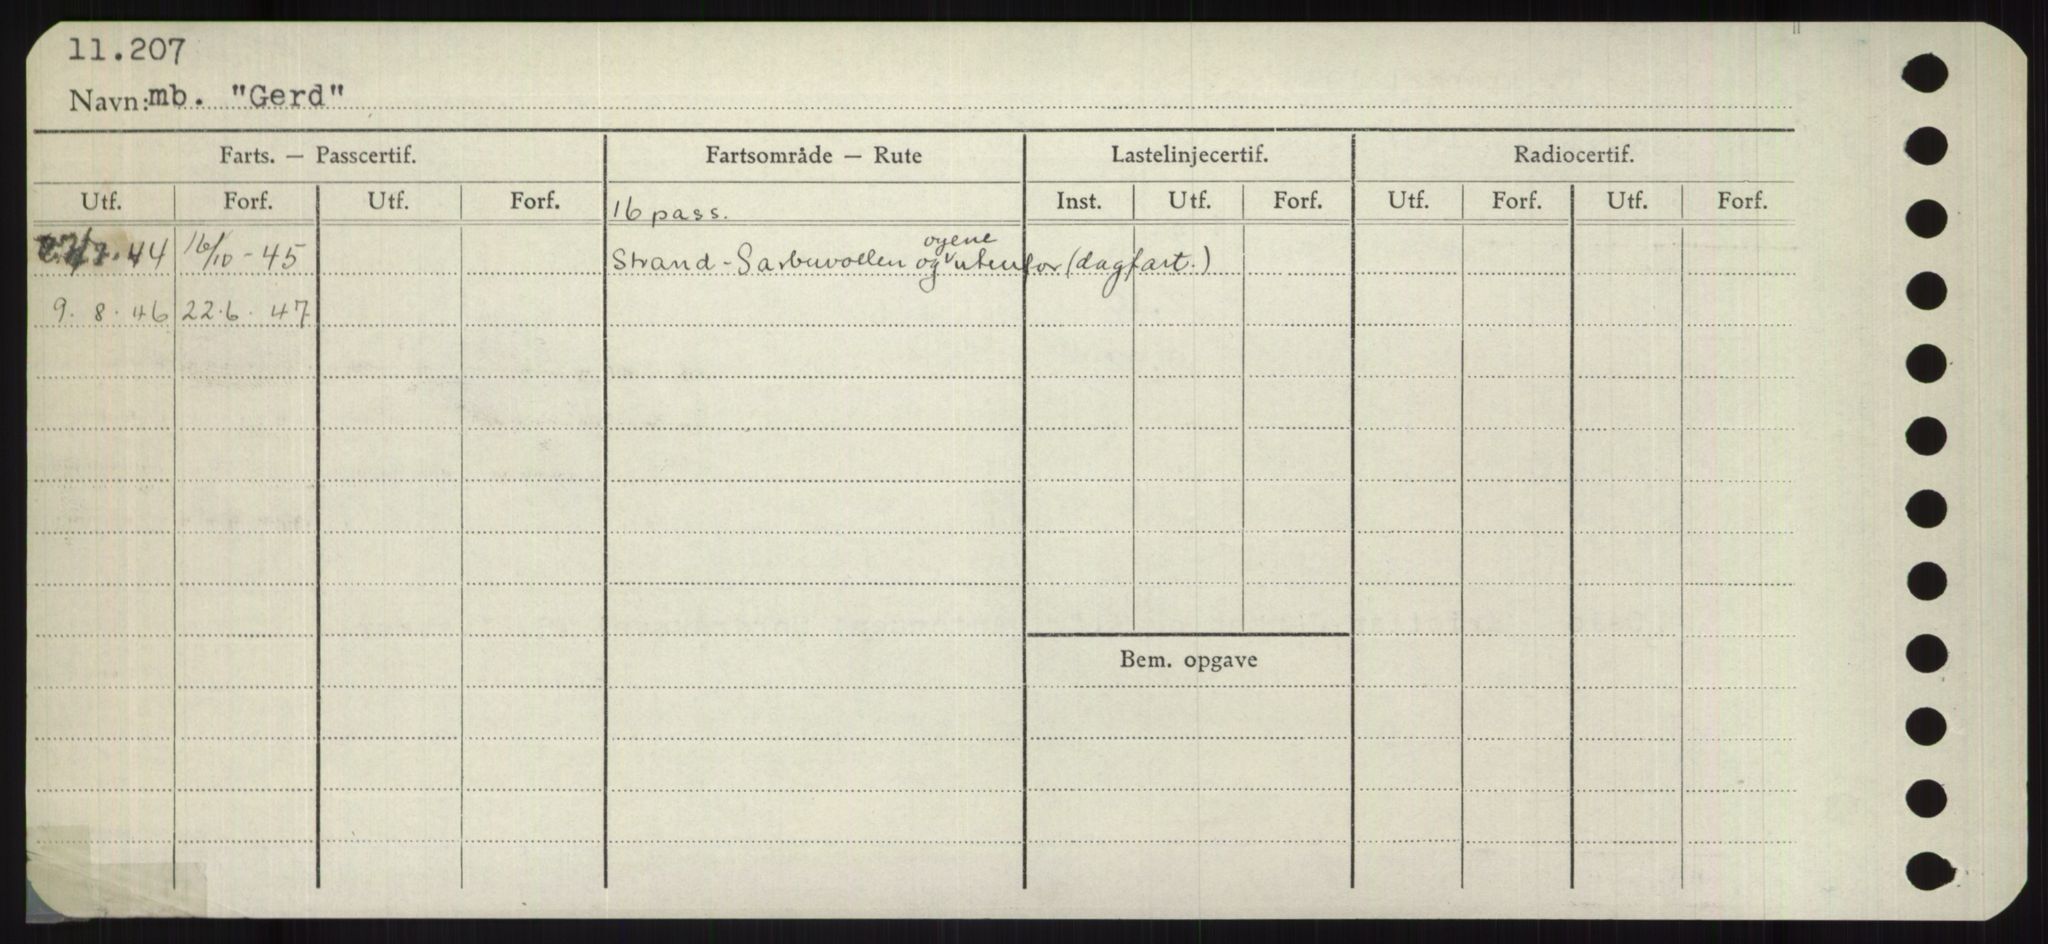 11.207
Navn: mb. "Gerd"
Farts. — Passcertif. Fartsområde — Rute Lastelinjecertif. Radiocertif.
Utf. Forf. Utf. Forf. 16 pass. Inst. Utf. Forf. Utf. Forf. Utf. Forf.
øyene
44 16/10 - 45 Strand - Sarbuvollen og utenfor (dagfart.)
9. 8. 46 22.6. 47
Bem. opgave